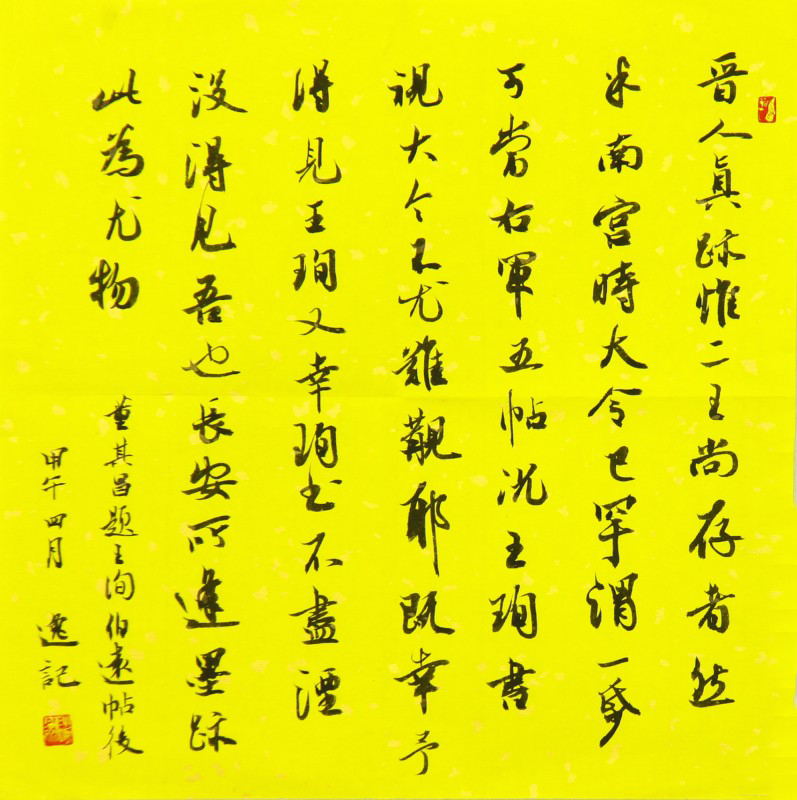 晋人真跡惟二王尚存者然
米南宫時大令已罕謂一㡒
可当右軍五帖况王珣書
視大令不尤難覯耶既幸予
得見王珣又幸珣书不盡湮
没得見吾也長安所逢墨跡
此為尤物
董其昌题王洵伯遠帖後
甲午四月 逸記